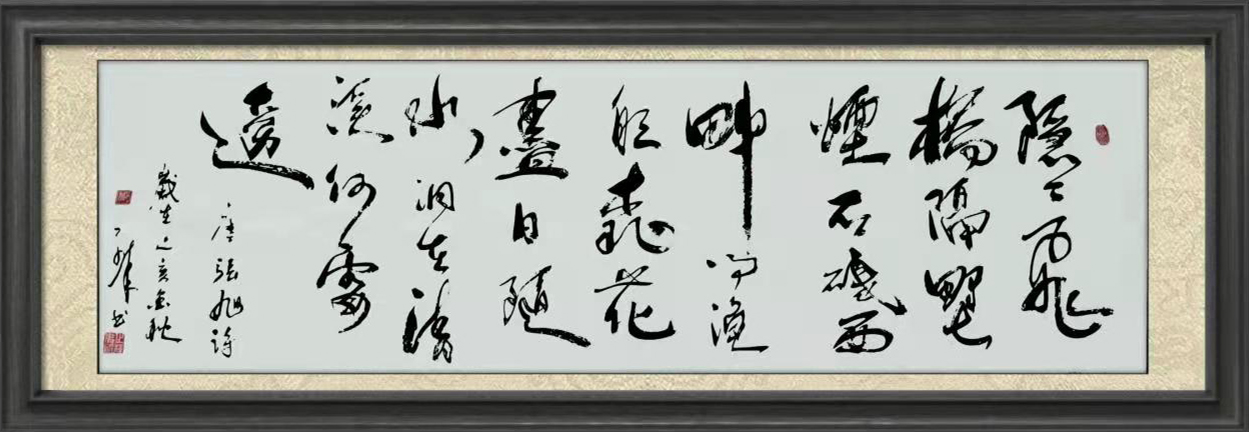 隱〻飛
橋隔野
煙石磯西
畔问漁
船桃花
盡日隨
水洞在清
溪何處
邊
唐張旭詩
歲在己亥金秋
书